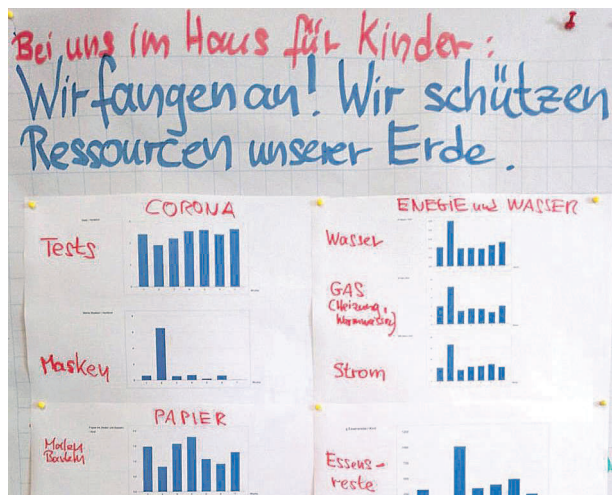 Bei uns im Haus für Kinder:
Wir fangen an! Wir schützen
Ressourcen unserer Erde.
CORONA
Tests
Masken
PAPIER
Malen
Basteln
ENEGIE und WASSER
Wasser
GAS
(Heizung,
Warmwasser)
Strom
Essens-
reste